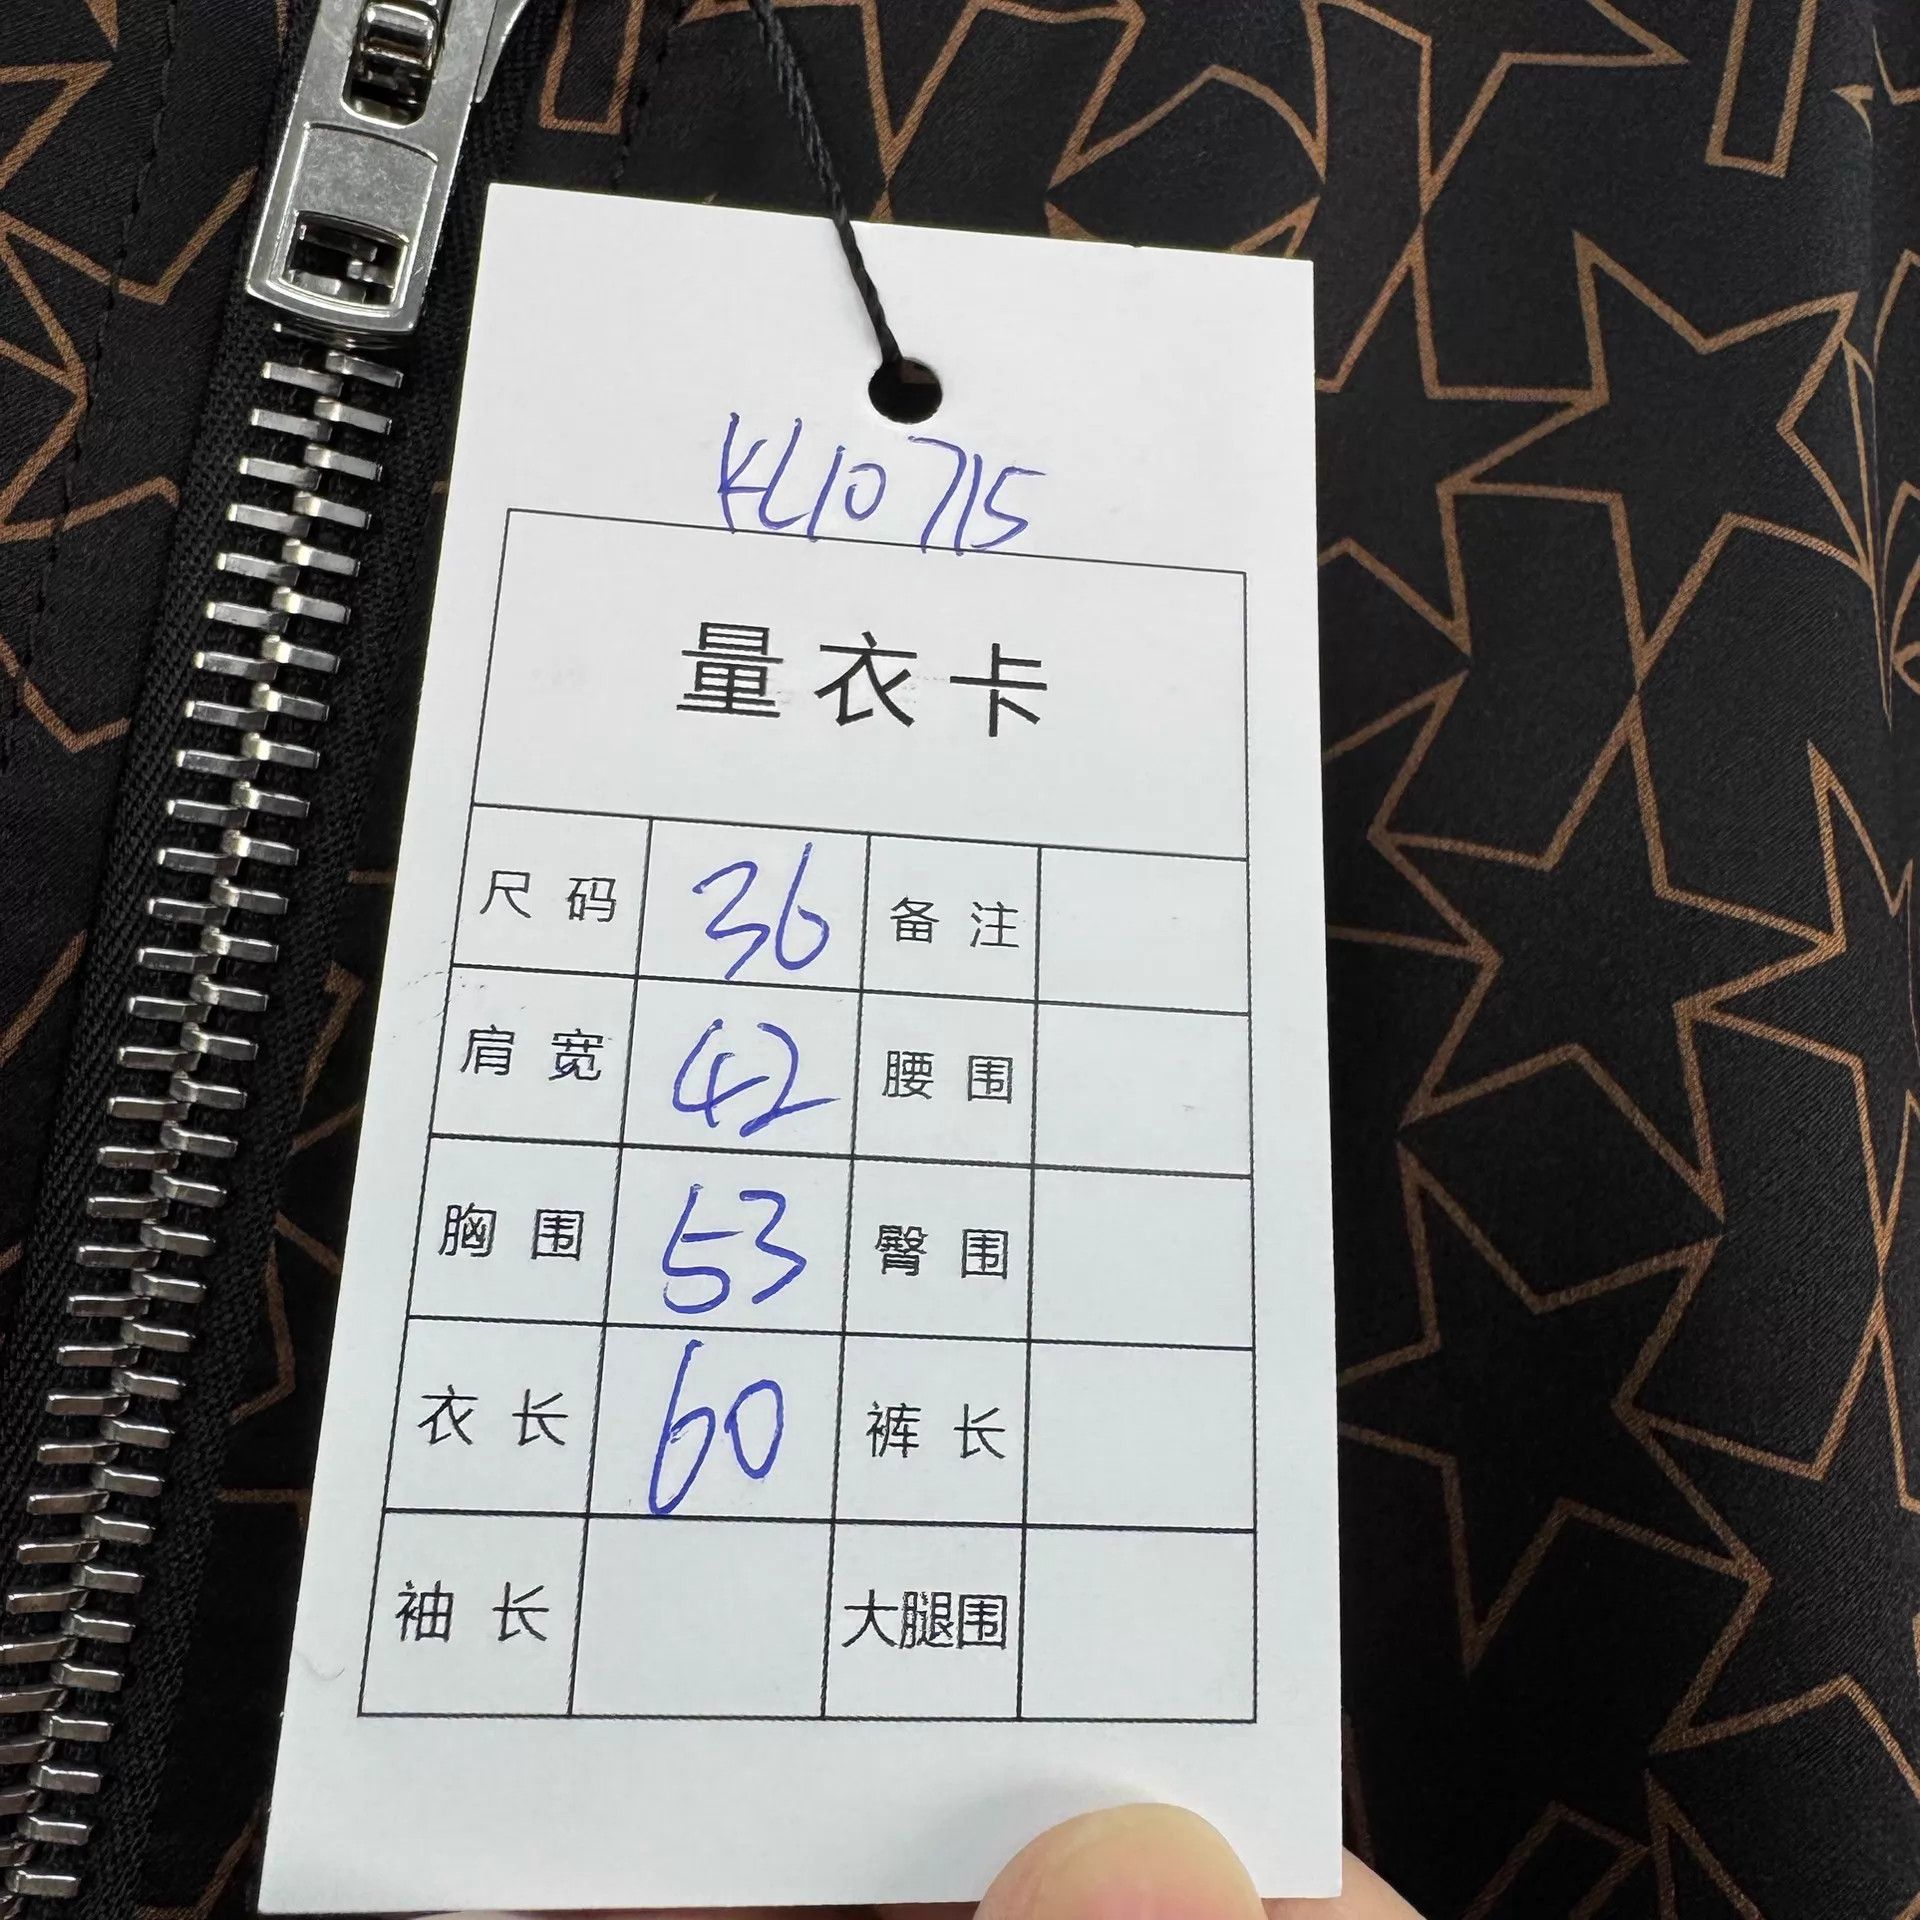 KL10715
量衣卡
尺码 36 备注
肩宽 42 腰围
胸围 53 臀围
衣长 60 裤长
袖长 大腿围